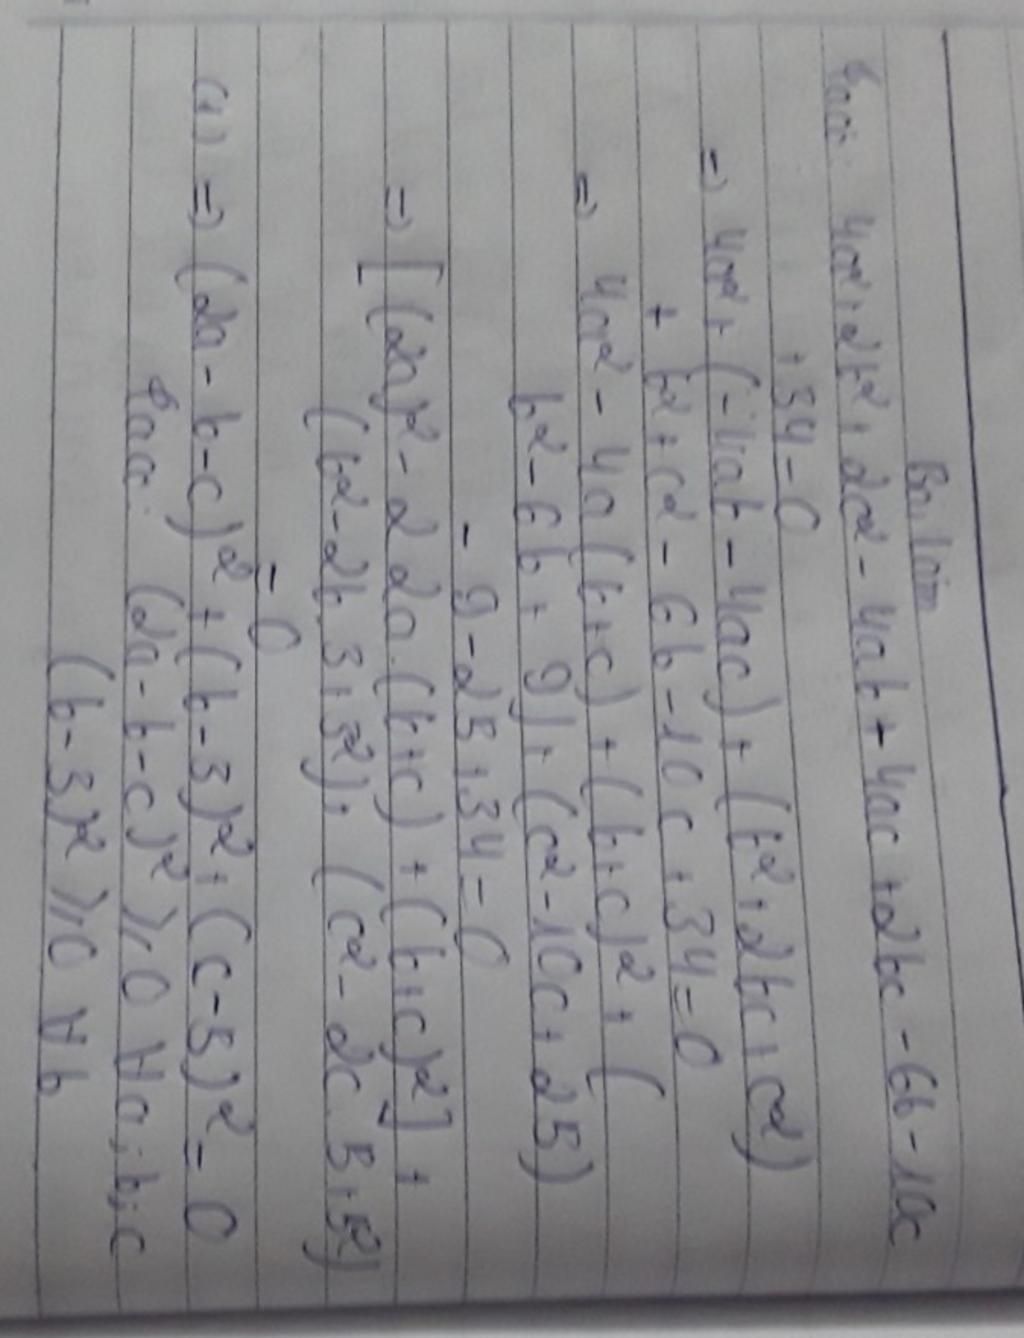 Bài làm
Ta có: 4a² + 2b² + 2c² - 4ab + 4ac + 2bc - 6b - 10c
+ 34 = 0
=> 4a² + (-4ab - 4ac) + (b² + 2bc + c²)
+ b² + c² - 6b - 10c + 34 = 0
=> 4a² - 4a(b+c) + (b+c)² + (
b² - 6b + 9) + (c² - 10c + 25)
- 9 - 25 + 34 = 0
=> [(2a)² - 2 2a.(b+c) + (b+c)²] +
(b² - 2b.3 + 3²) + (c² - 2c.5 + 5²)
= 0
(1) => (2a - b - c)² + (b - 3)² + (c - 5)² = 0
Ta có: (2a - b - c)² ≥ 0 ∀ a; b; c
(b - 3)² ≥ 0 ∀ b